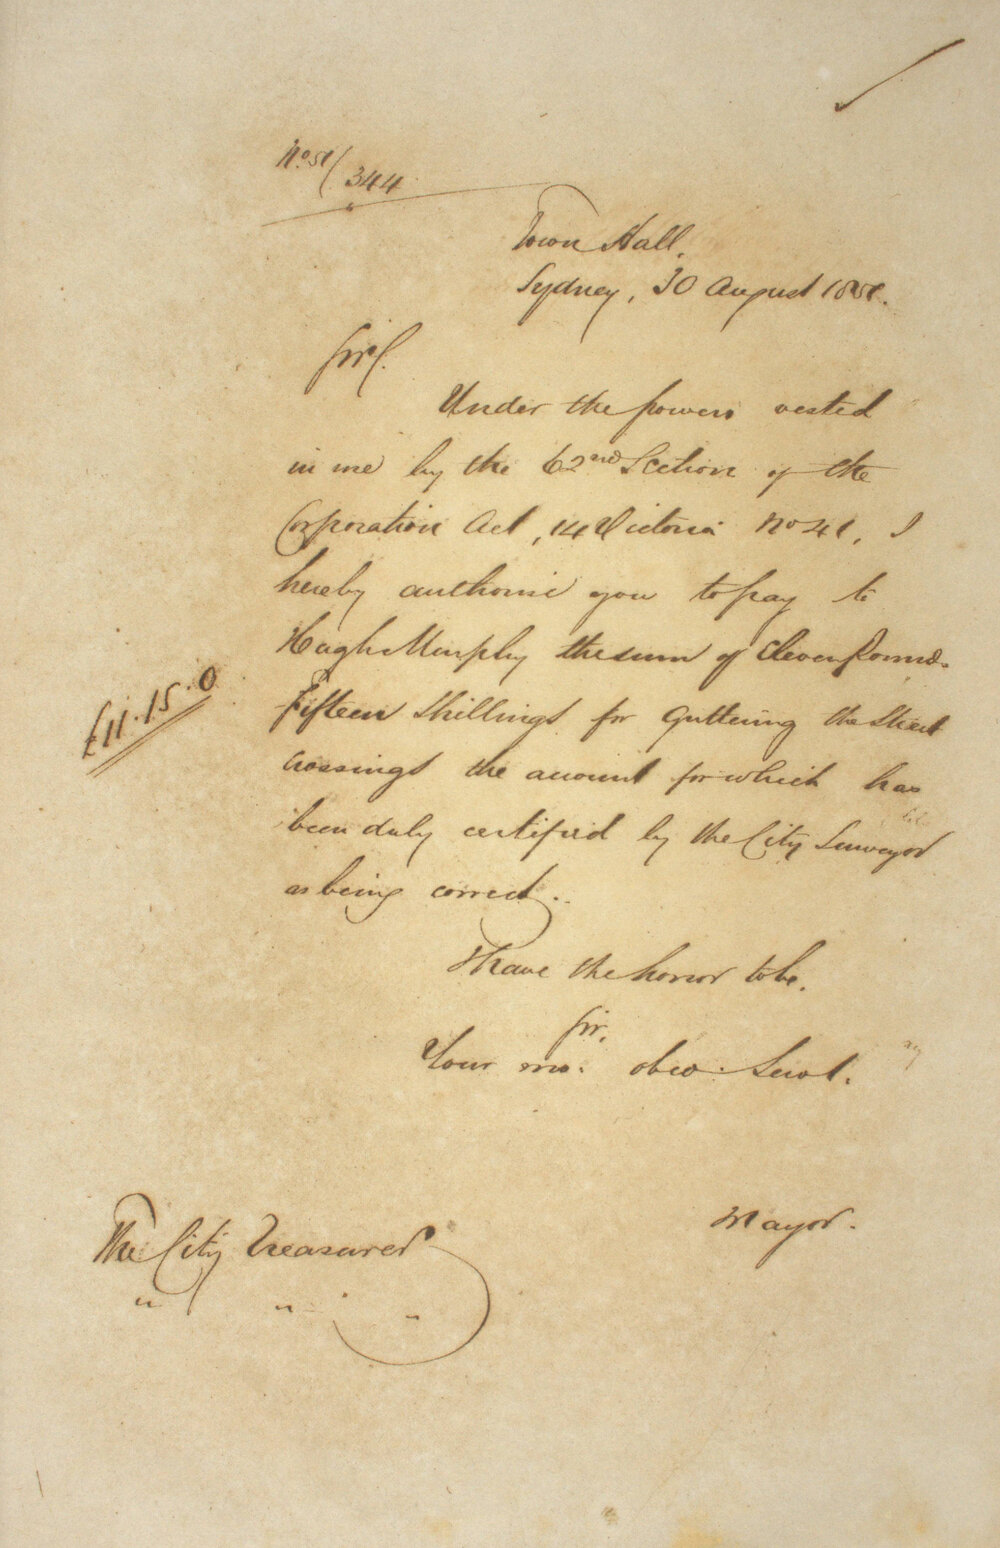 No 51/344
Town Hall,
Sydney, 30 August 1851.
Sir/.
Under the powers vested
in me by the 62nd Section of the
Corporation Act, 14 Victoria No 41, I
hereby authorise you to pay to
Hugh Murphy the sum of Eleven Pounds
Fifteen Shillings for Guttering the Street
£11.15.0
crossings the amount for which has
been duly certified by the City Surveyor
as being correct.
I have the honor to be,
Sir,
Your mo: obed: Servt.
Mayor.
The City Treasurer
" " "